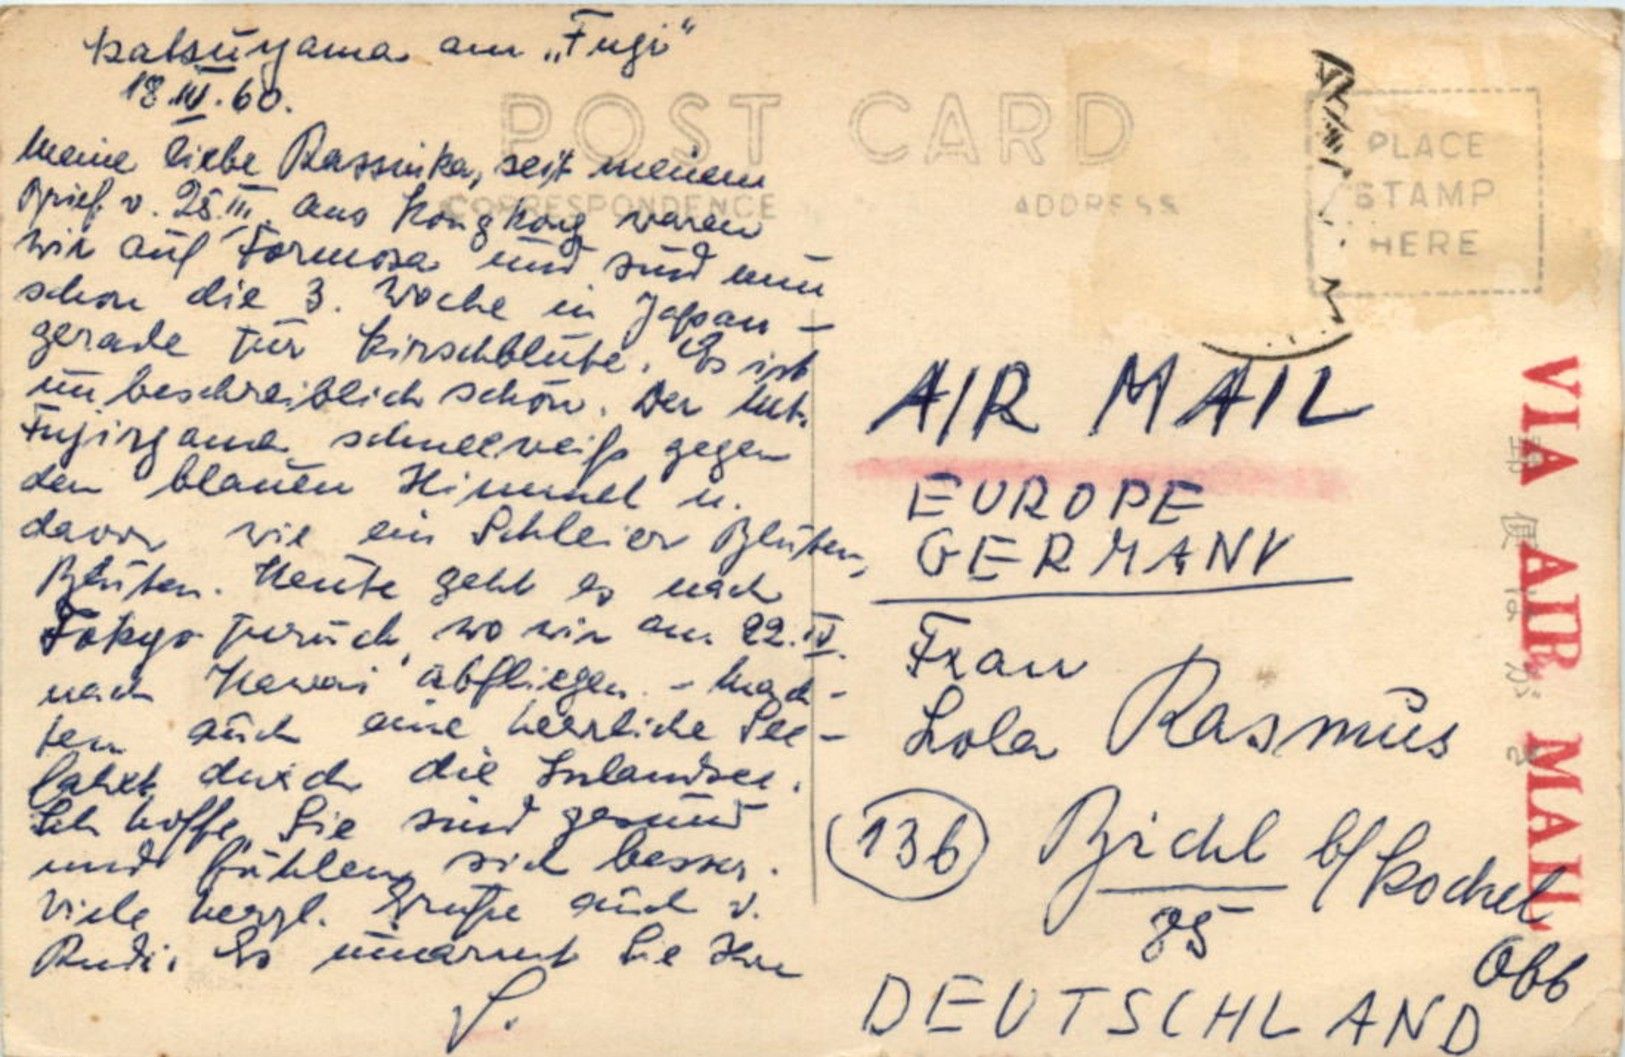 Katsuyama am „Fugi"
18.IV.60.
POST CARD
CORRESPONDENCE
ADDRESS
PLACE
STAMP
HERE
Meine liebe Rassnika, seit meinem
Brief v. 25.III. aus Hongkong waren
wir auf Formosa und sind nun
schon die 3. Woche in Japan –
gerade zur Kirschblüte. Es ist
unbeschreiblich schön. Der Mt.
Fujiyama schneeweiß gegen
den blauen Himmel u.
davor wie ein Schleier Blüten,
Blüten. Heute geht es nach
Tokyo zurück, wo wir am 22.IV.
nach Hawai abfliegen. – Mach-
ten auch eine herrliche See-
fahrt durch die Inlandsee.
Ich hoffe, Sie sind gesund
und fühlen sich besser.
Viele herzl. Grüße auch v.
Rudi. Es umarmt Sie Ihre
AIR MAIL
EUROPE
GERMANY
Frau
Lola Rasmus
(13b) Bichl b/Kochel
85
Obb
DEUTSCHLAND
VIA AIR MAIL